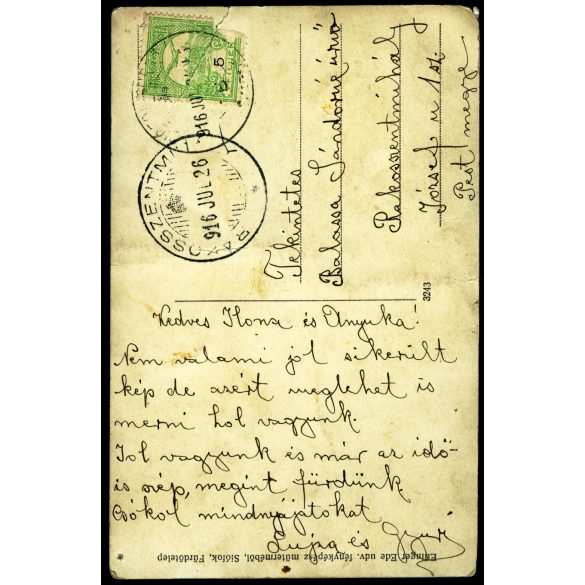 5
916 JUL 26
RÁKOSSZENTM
Tekintetes
Balassa Sándorné úrnő
Rákosszentmihály
József u 1 sz.
Pest megye
3243
Kedves Ilona és Anyuka!
Nem valami jól sikerült
kép de azért meglehet is
merni hol vagyunk.
Jol vagyunk és már az idő-
is szép, megint fürdünk
Csókol mindnyájatokat
és Gyuri
Ellinger Ede udv. fényképész műterméből, Siófok, Fürdőtelep